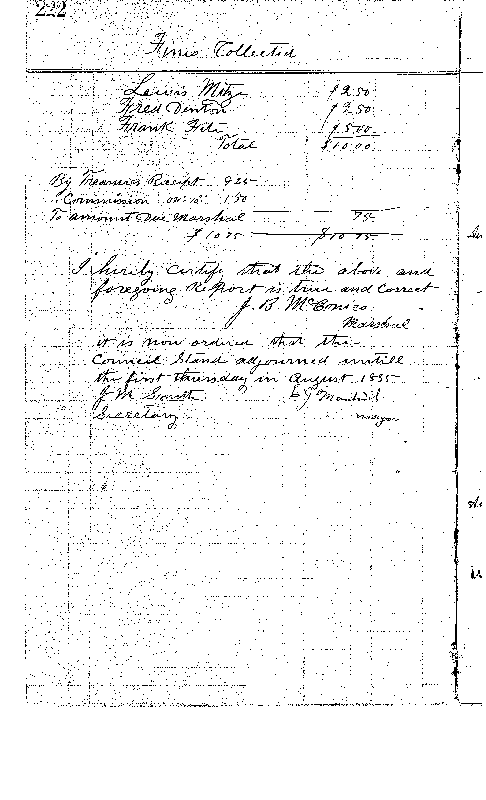 222
Fines Collected
Lewis Motze $2.50
Fred Denton $2.50
Frank Fite $5.00
Total $10.00
By Treasures Receipt 9 25
" Commission on " 1.50
To amount Due Marshal 75
$10 75 $10 75
I hereby certify that the above and
foregoing Report is true and correct
J. B. McConico
Marshal
it is now ordered that the
Council Stand adjourned untill
the first thursday in August 1895
J M Smith
Secretary mayor